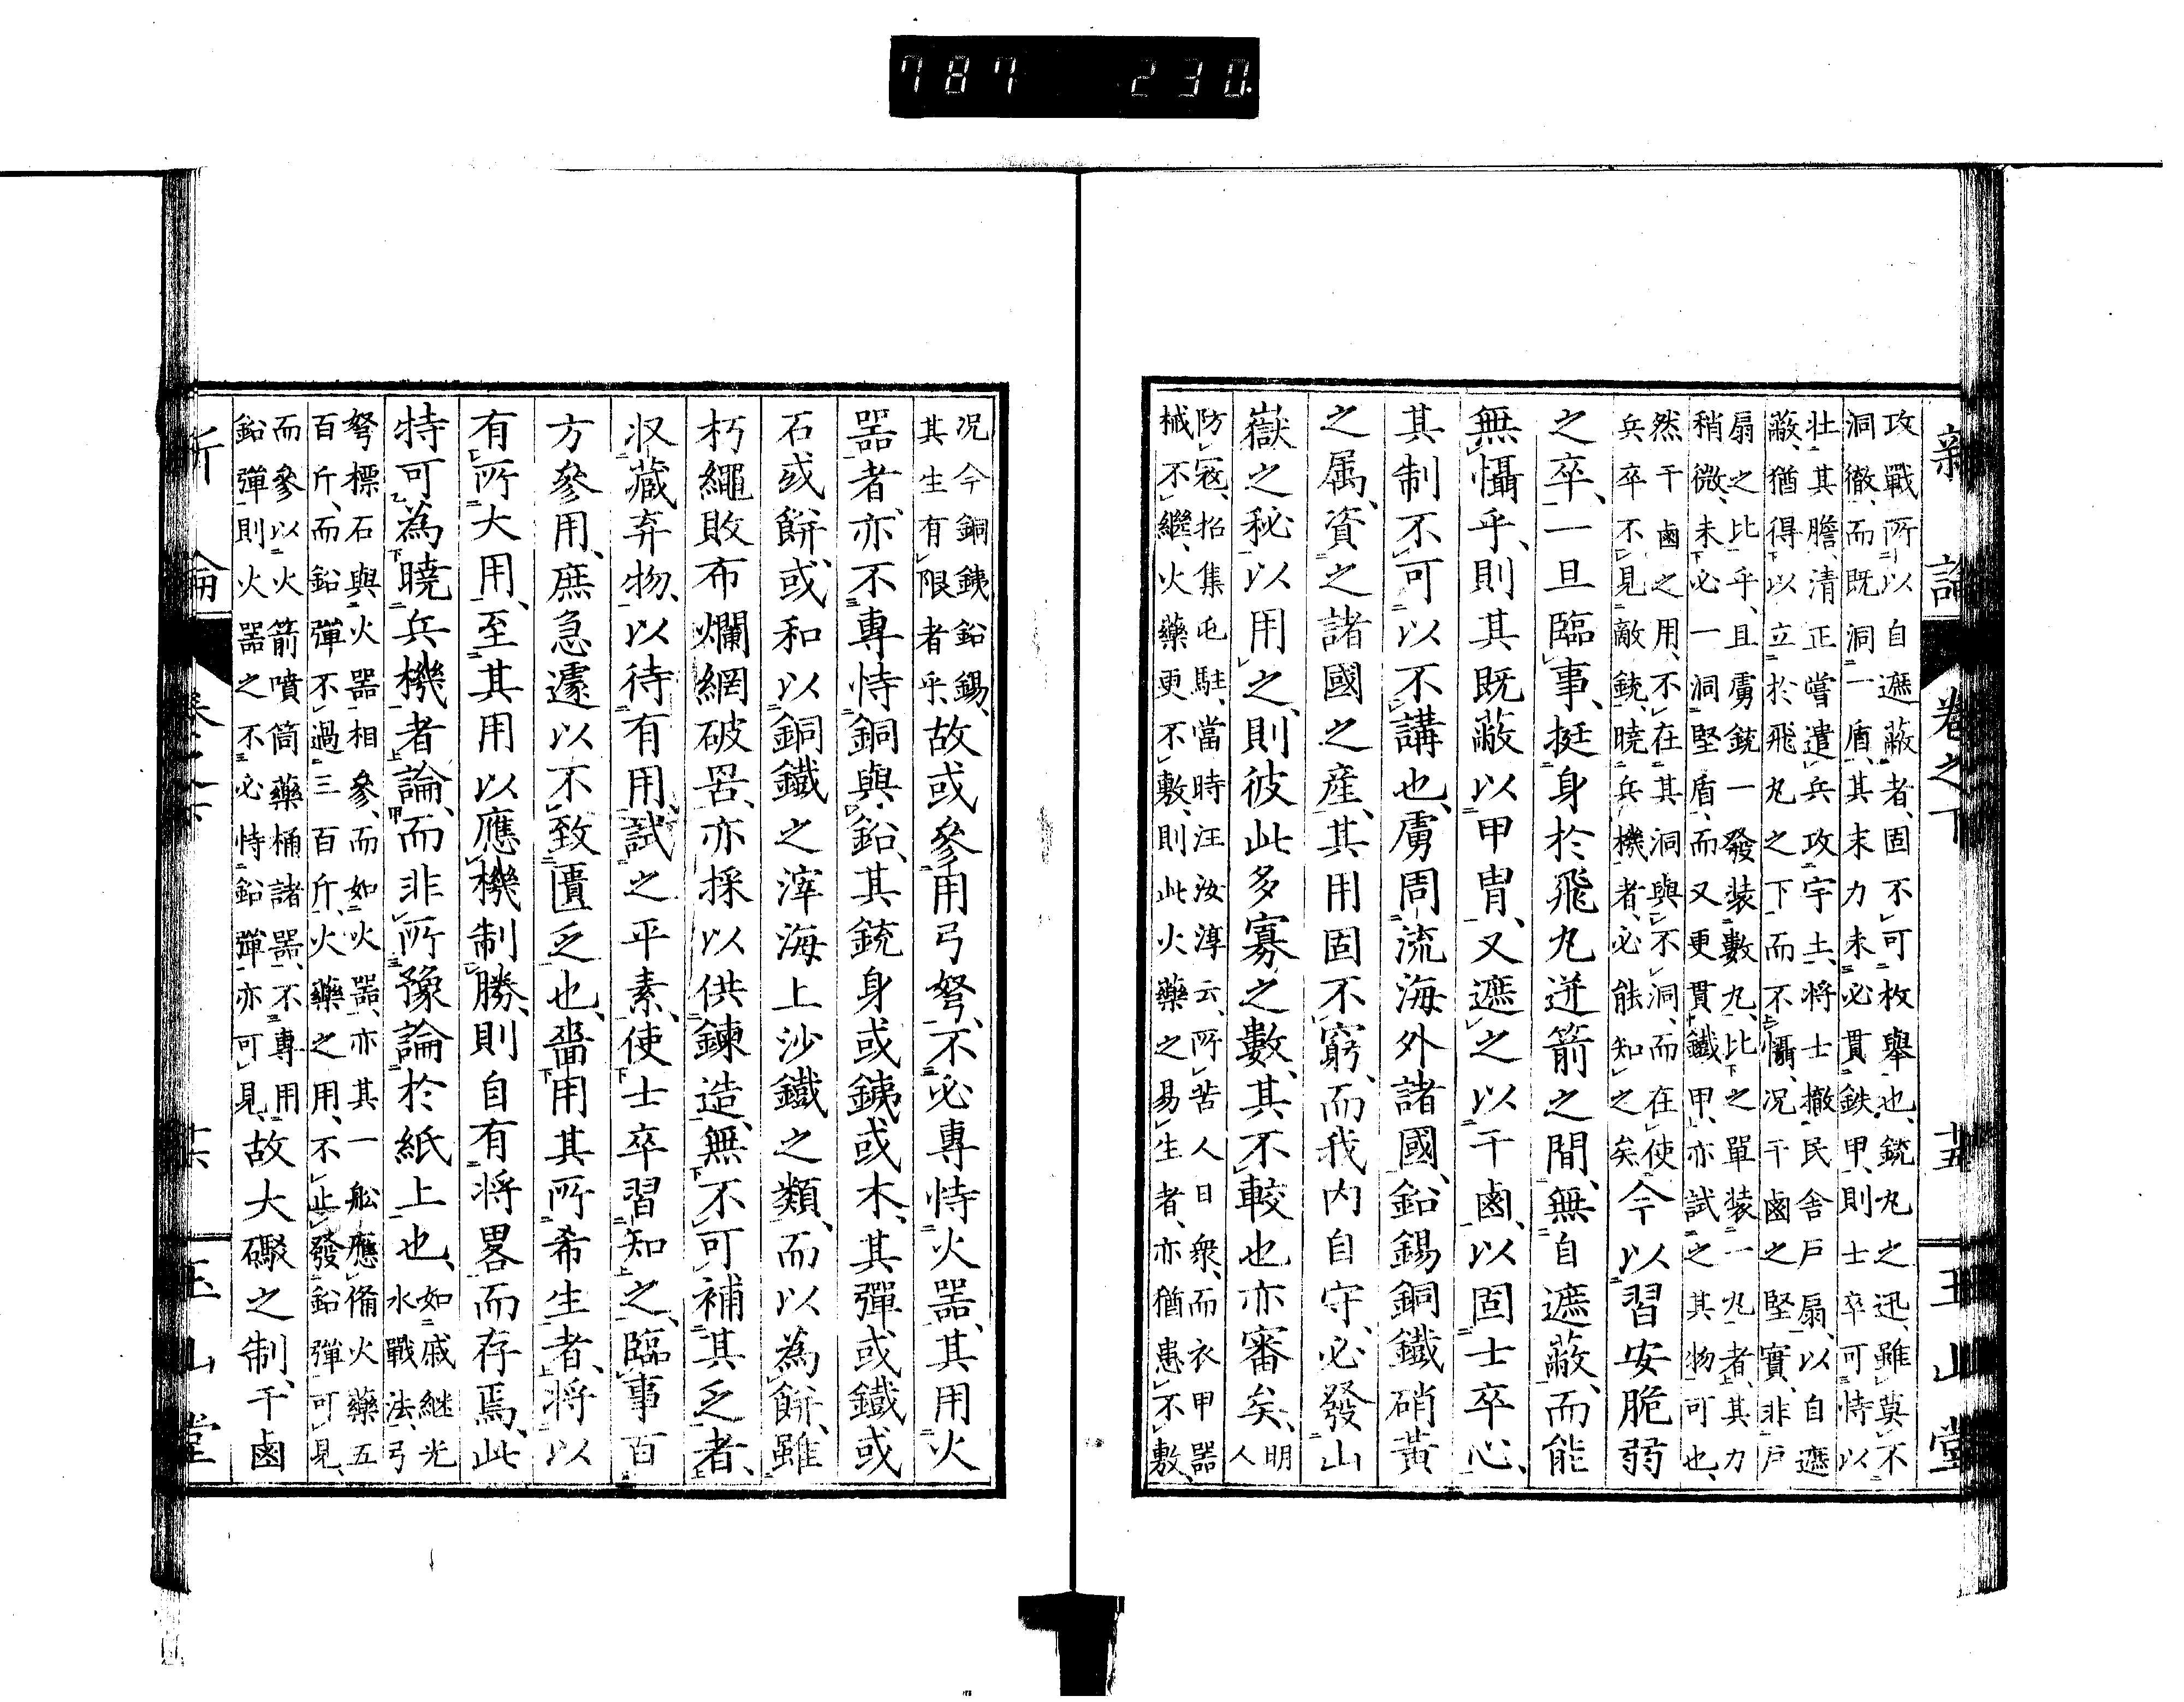 787 230.
新論 卷之下 十五 玉山堂
攻戰所以自遮蔽者、固不可枚舉也、銃丸之迅、雖莫不
洞徹、而既洞一盾、其末力未必貫鉄甲、則士卒可恃以
壮其膽、清正嘗遣兵攻宇土、將士撤民舍戸扇、以自遮
蔽、猶得以立於飛丸之下而不懾、况干鹵之堅實、非戸
扇之比乎、且虜銃一發装數丸、比之單装一丸者、其力
稍微、未必一洞堅盾、而又更貫鐵甲、亦試之其物可也、
然干鹵之用、不在其洞與不洞、而在使
兵卒不見敵銃、曉兵機者、必能知之矣
今以習安脆弱
之卒、一旦臨事、挺身於飛丸迸箭之間、無自遮蔽、而能
無懾乎、則其既蔽以甲冑、又遮之以干鹵、以固士卒心、
其制不可以不講也、虜周流海外諸國、鉛錫銅鐵硝黃
之属、資之諸國之産、其用固不窮、而我内自守、必發山
嶽之秘以用之、則彼此多寡之數、其不較也亦審矣、
明
人
防寇、招集屯駐、當時汪汝淳云、所苦人日衆、而衣甲器
械不繼、火藥更不敷、則此火藥之易生者、亦猶患不敷、
况今銅銕鉛錫、
其生有限者乎、
故或參用弓弩、不必專恃火器、其用火
器者、亦不專恃銅與鉛、其銃身或銕或木、其彈或鐵或
石或餅、或和以銅鐵之滓海上沙鐵之類、而以為餅、雖
朽繩敗布爛網破罟、亦採以供鍊造、無不可補其乏者、
収藏弃物、以待有用、試之平素、使士卒習知之、臨事百
方參用、庶急遽以不致匱乏也、嗇用其所希生者、將以
有所大用、至其用以應機制勝、則自有将畧而存焉、此
特可為曉兵機者論、而非所豫論於紙上也、
如戚継光
水戰法、弓
弩標石與火器相參、而如火器、亦其一舩應備火藥五
百斤、而鉛彈不過三百斤、火藥之用、不止發鉛彈可見、
而參以火箭噴筒藥桶諸器、不專用
鉛彈、則火器之不必恃鉛彈、亦可見、
故大礮之制、干鹵
新論 卷之下 十六 玉山堂